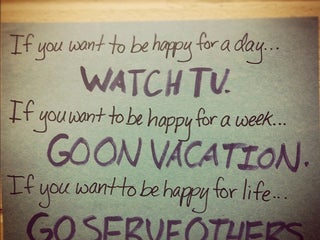 If you want to be happy for a day...
WATCH TV.
If you want to be happy for a week...
GO ON VACATION.
If you want to be happy for life...
GO SERVE OTHERS